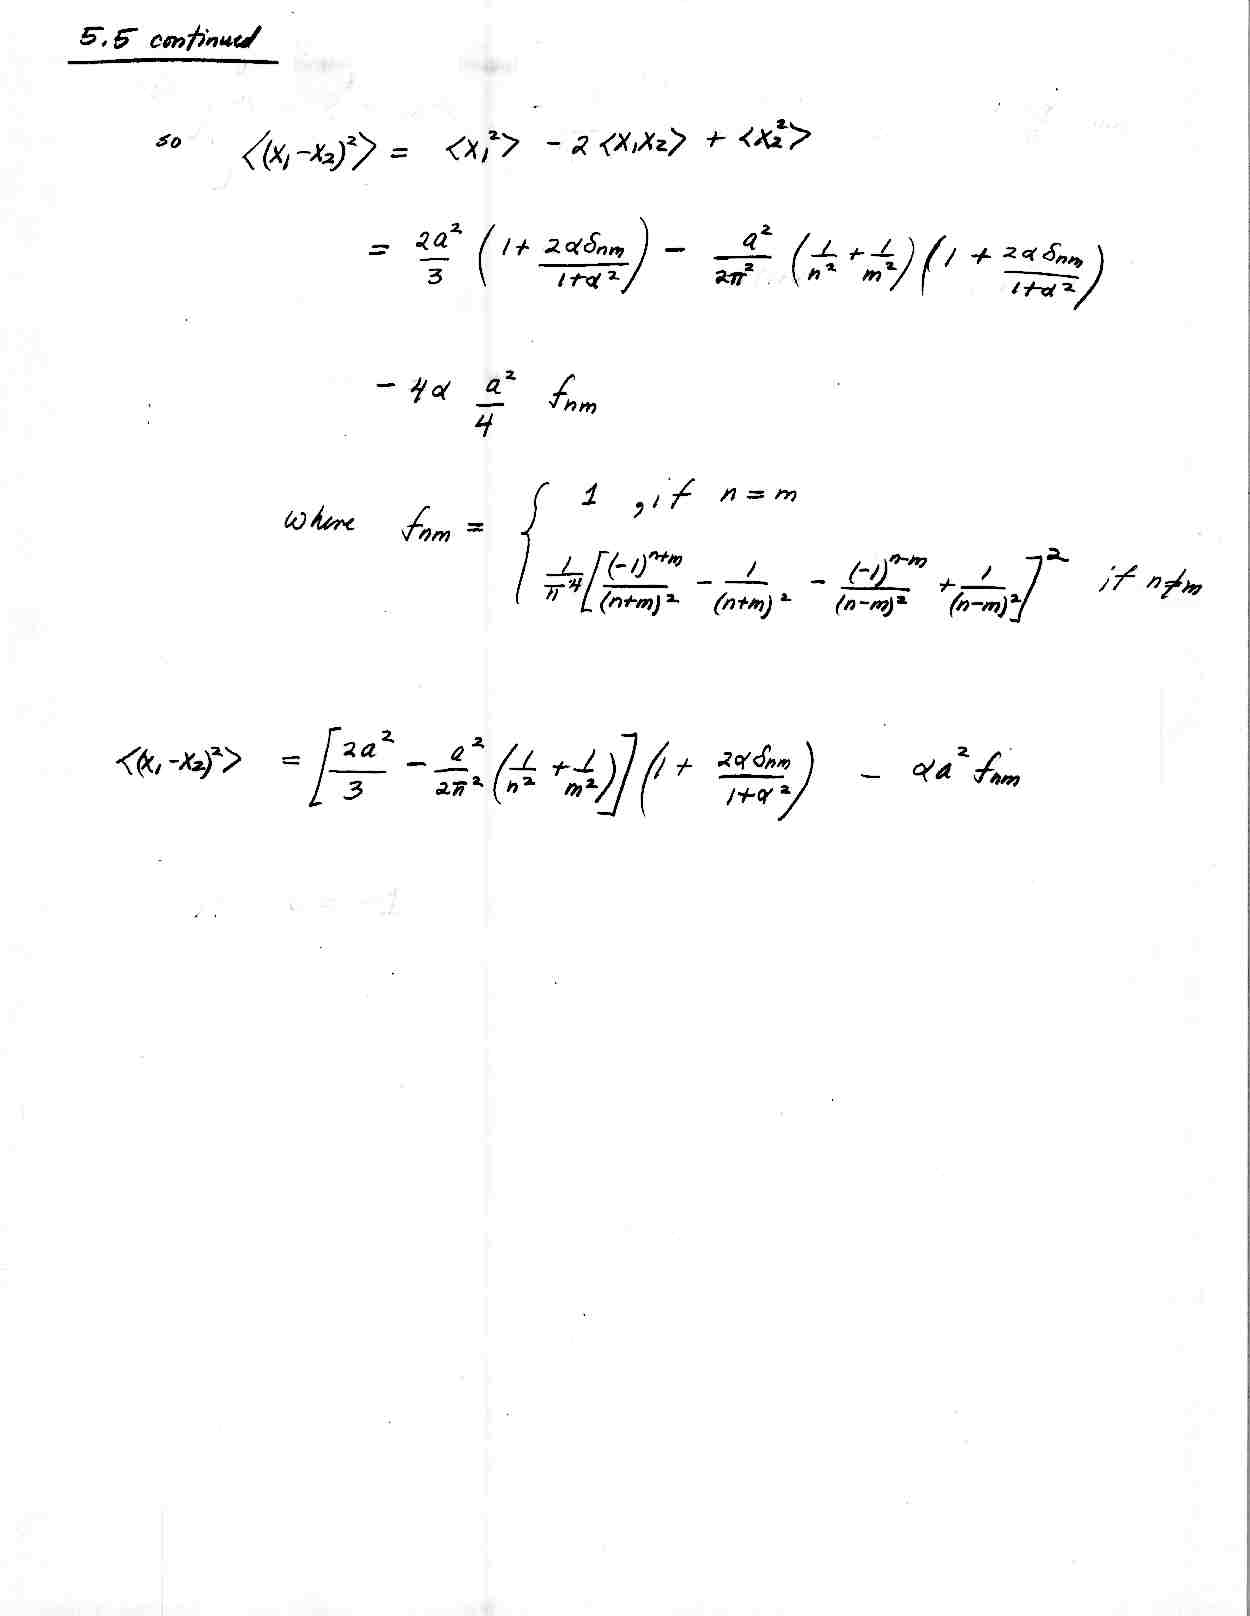 5.5 continued
so ⟨(x₁-x₂)²⟩ = ⟨x₁²⟩ - 2⟨x₁x₂⟩ + ⟨x₂²⟩
= 2a²/3 (1 + 2αδₙₘ/(1+α²)) - a²/2π² (1/n² + 1/m²)(1 + 2αδₙₘ/(1+α²))
- 4α a²/4 fₙₘ
where fₙₘ = { 1 , if n = m
1/π⁴ [(-1)ⁿ⁺ᵐ/(n+m)² - 1/(n+m)² - (-1)ⁿ⁻ᵐ/(n-m)² + 1/(n-m)²]² if n≠m
⟨(x₁-x₂)²⟩ = [2a²/3 - a²/2π² (1/n² + 1/m²)](1 + 2αδₙₘ/(1+α²)) - αa² fₙₘ